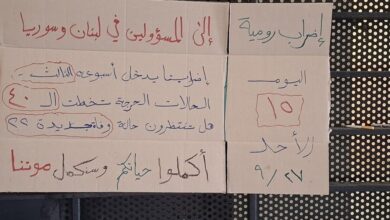 إضراب رومية
اليوم
١٥
الأحد
٩/٢٧
إلى المسؤولين في لبنان وسوريا
إضرابنا يدخل أسبوعه الثالث..
الحالات الحرجة تخطت الـ ٤٠
هل تنتظرون حالة وفاة جديدة ؟؟
أكملوا حياتكم وسنكمل موتنا